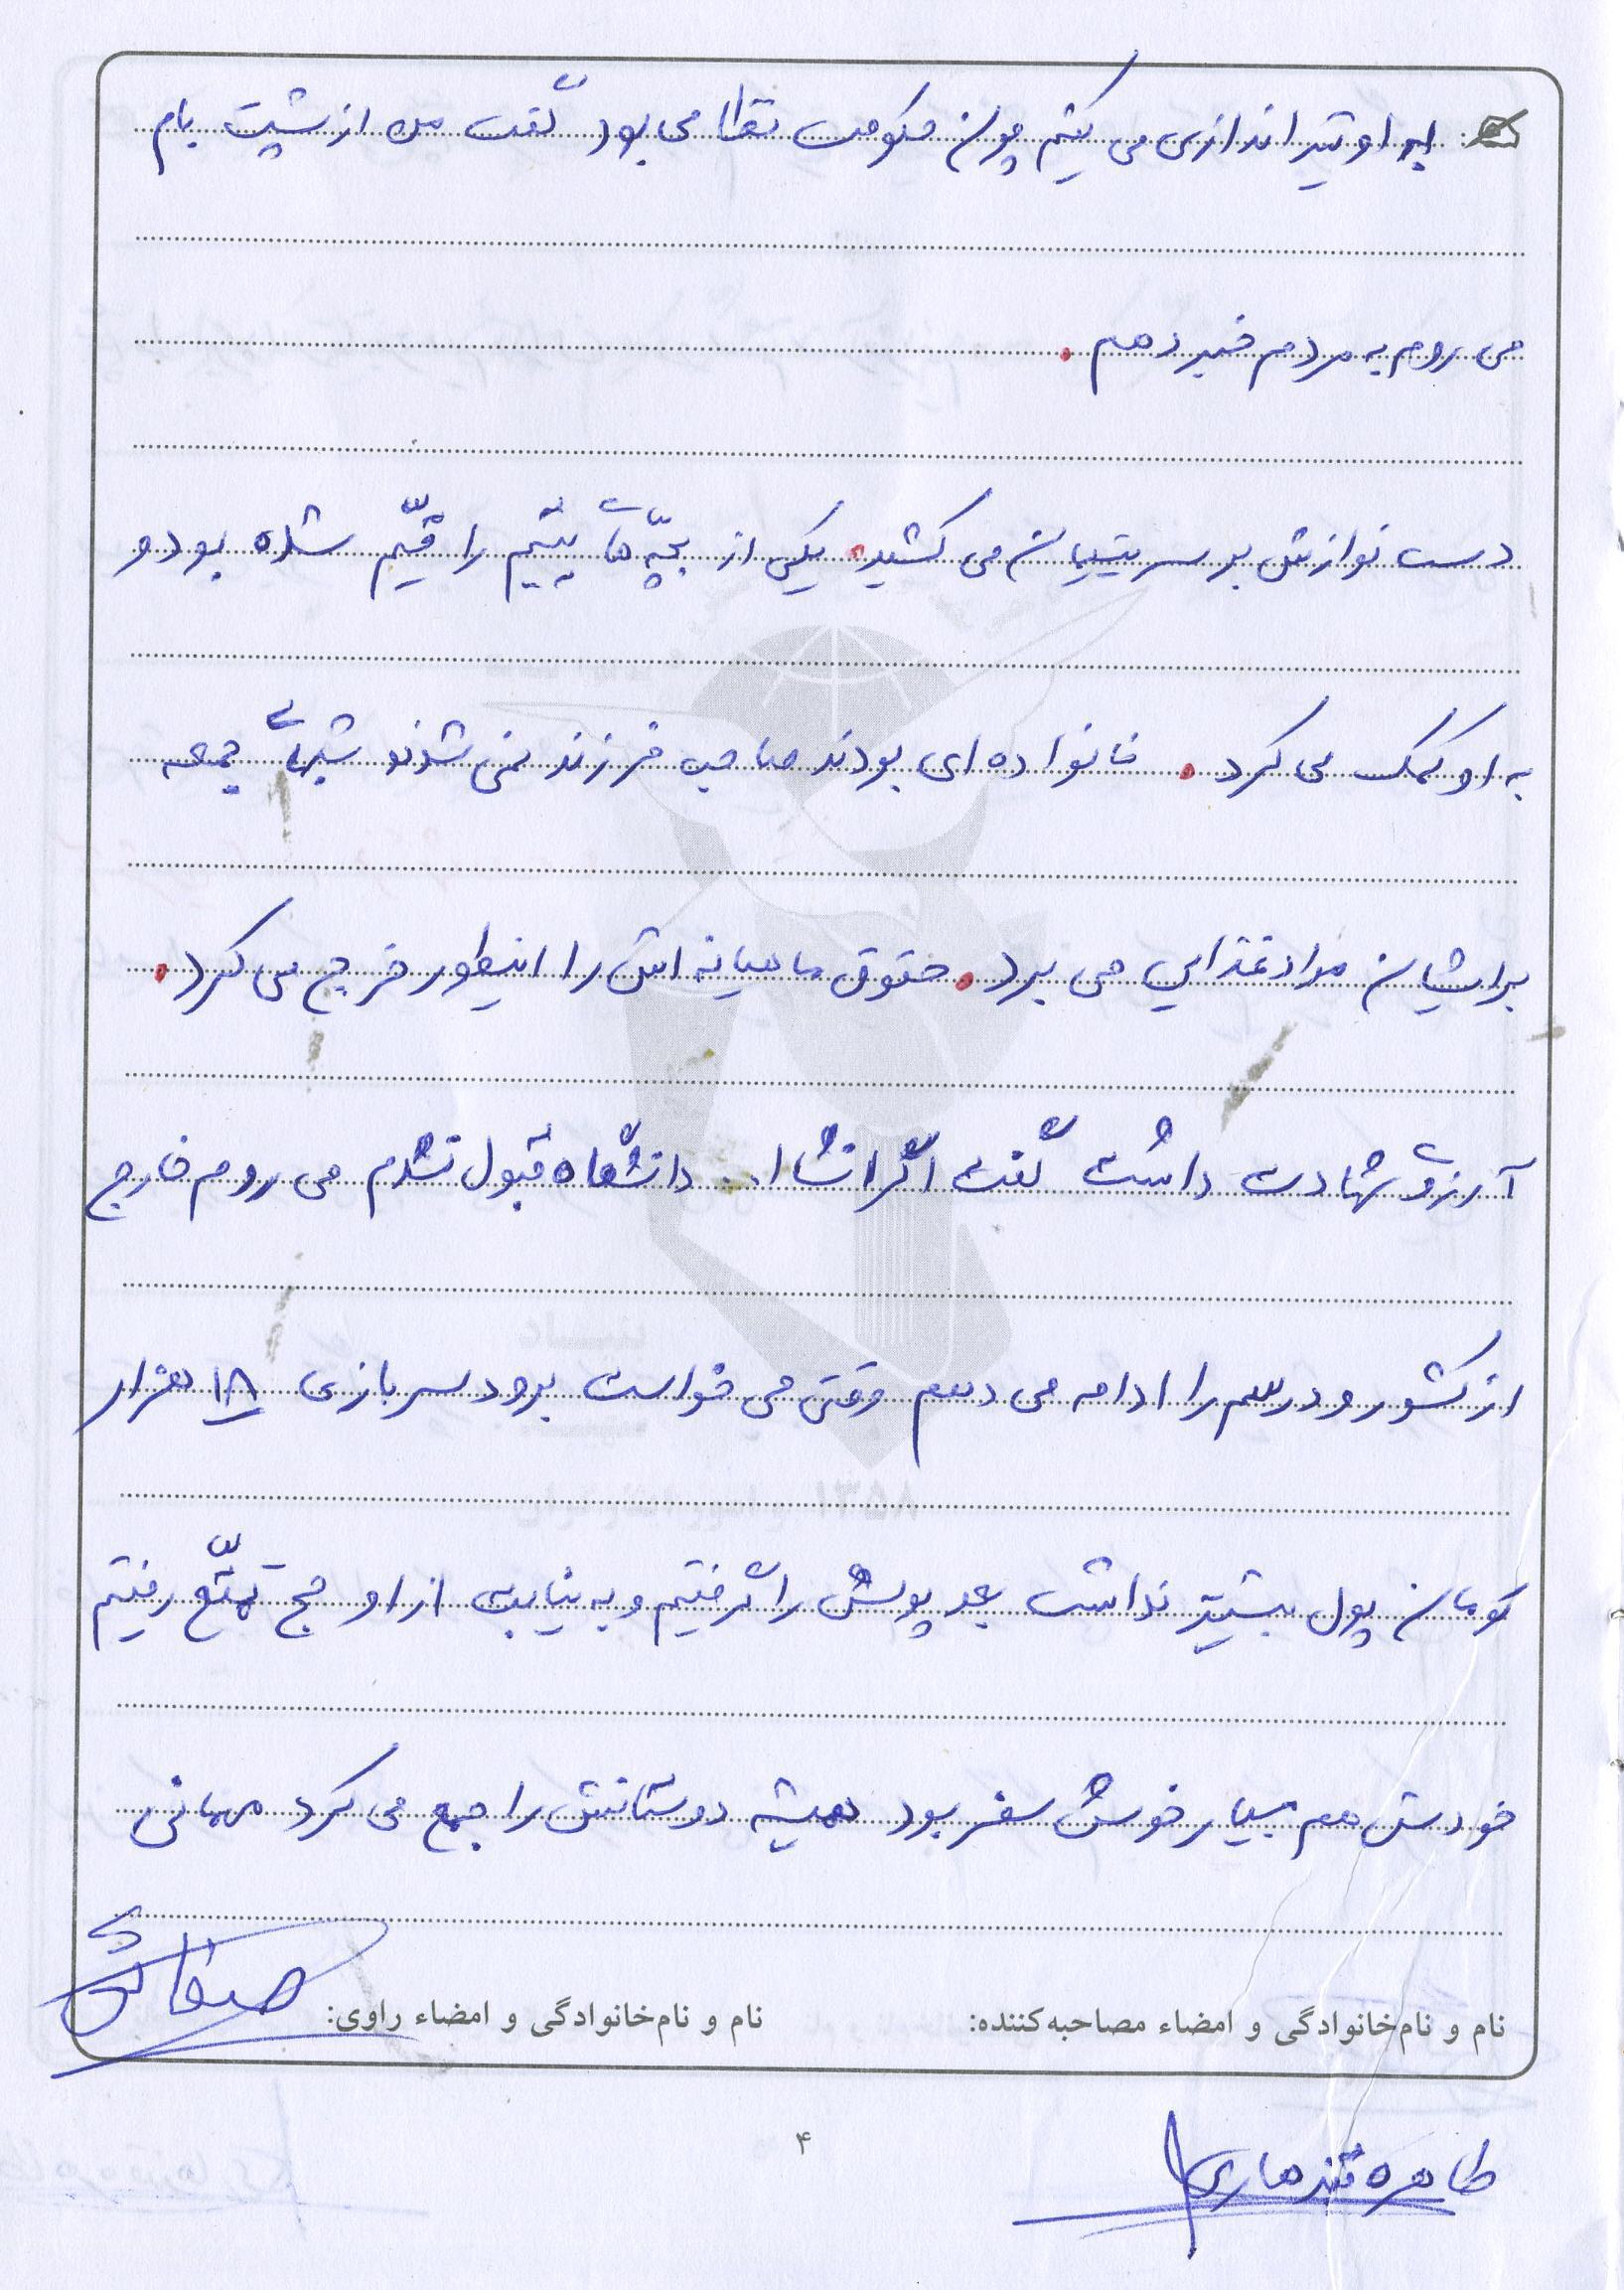 به او تیراندازی می کنیم چون حکومت نظامی بود گفت من از پشت بام
می روم به مردم خبر دهم.
دست نوازش بر سر یتیمان می کشید. یکی از بچّه های یتیم را قیّم شده بود و
به او کمک می کرد. خانواده ای بودند صاحب فرزند نمی شدند شبهای جمعه
برایشان مواد غذایی می برد. حقوق ماهیانه اش را اینطور خرج می کرد.
آرزوی شهادت داشت گفت اگر انشا ا... دانشگاه قبول نشدم می روم خارج
از کشور و درسم را ادامه می دهم وقتی می خواست برود سربازی ۱۸ هزار
تومان پول بیشتر نداشت بعد پولش را گرفتیم و به نیابت از او حج تمتّع رفتیم
خودش هم بسیار خوش سفر بود همیشه دوستانش را جمع می کرد مهمانی
نام و نام‌خانوادگی و امضاء مصاحبه‌کننده: نام و نام‌خانوادگی و امضاء راوی:
طاهره قندهاری
۴
۱۳۵۸